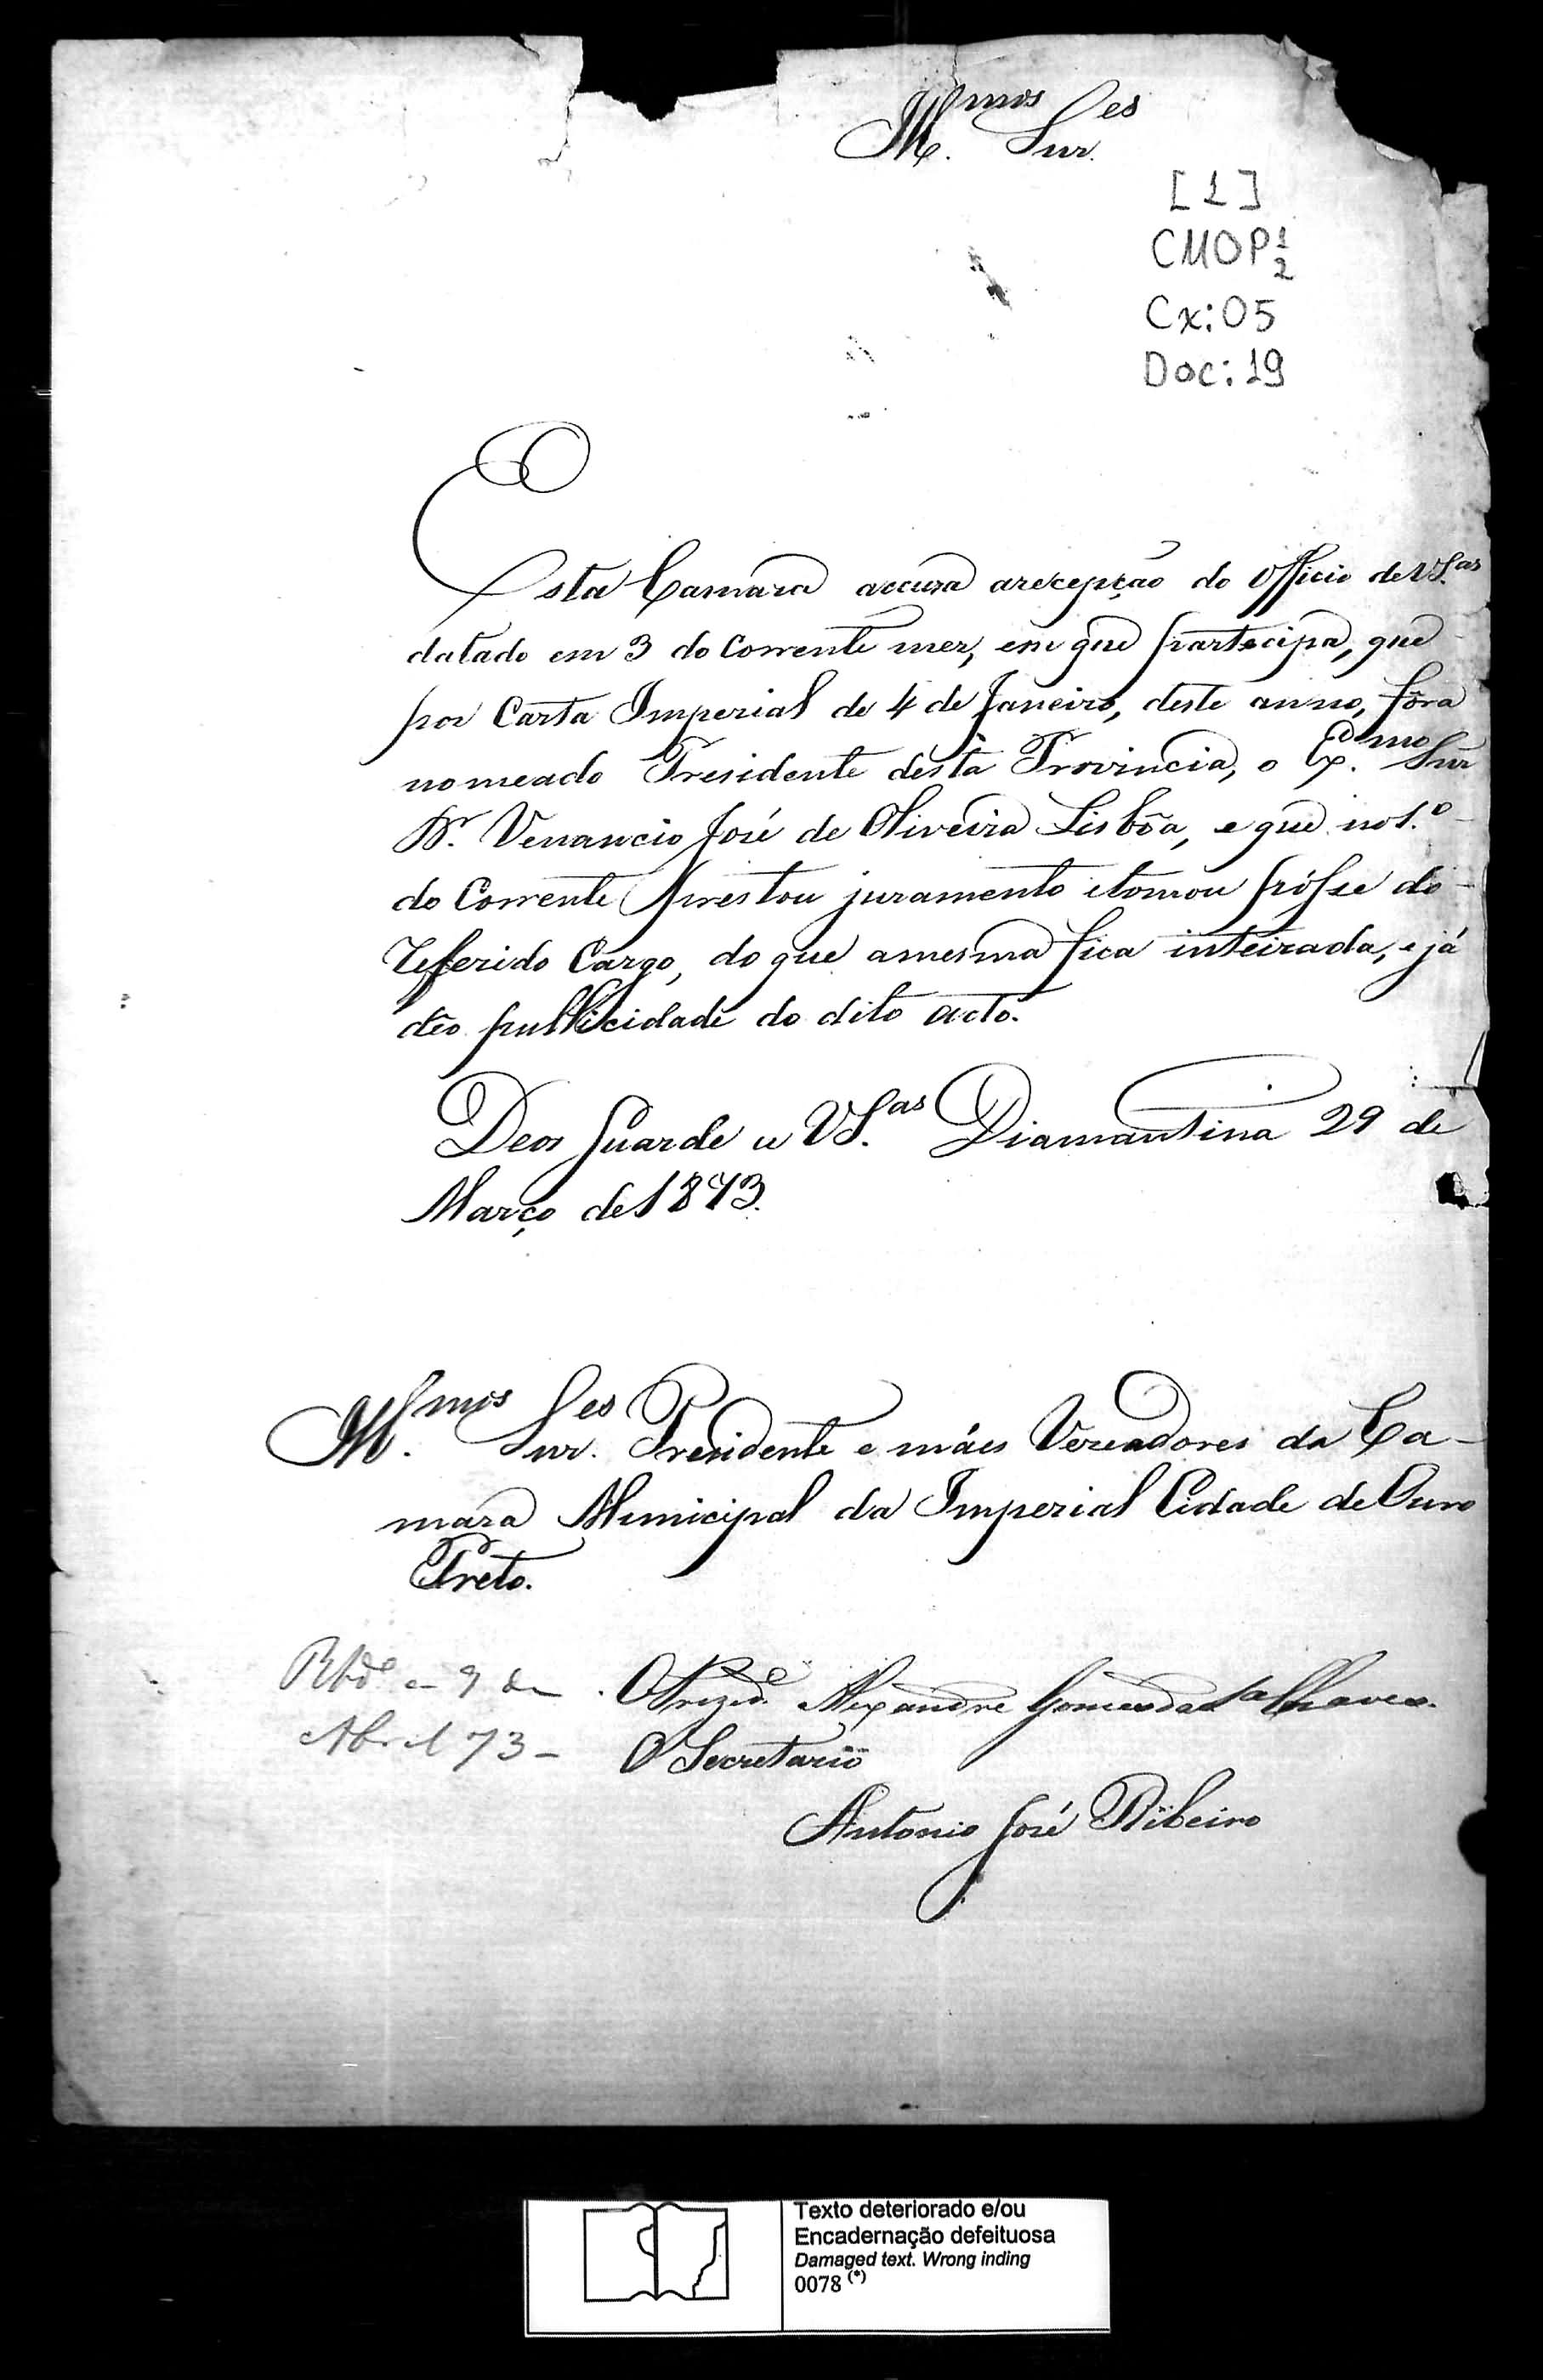 Ill.mos Snr.es
[1]
CMOP 1/2
Cx: 05
Doc: 19
Esta Camara accusa arecepção do Officio de VS.as
datado em 3 do Corrente mez, em que partecipa, que
por Carta Imperial de 4 de Janeiro, deste anno, fôra
nomeado Presidente desta Provincia, o Ex.mo Snr
Dr. Venancio José de Oliveira Lisbôa, e que no 1.º
do Corrente prestou juramento etomou pósse do
refferido Cargo, do que amesma fica inteirada, e já
deo publicidade do dito acto.
Deos Guarde a VS.as Diamantina 29 de
Março de 1873.
Ill.mos Snr.es Presidente e máis Vereadores da Ca-
mara Municipal da Imperial Cidade de Ouro
Preto.
O Prezid.e Alexandre Gomes da S.a Chaves.
Abril 73 -
O Secretario
Antonio José Ribeiro
Texto deteriorado e/ou
Encadernação defeituosa
Damaged text. Wrong inding
0078 (*)